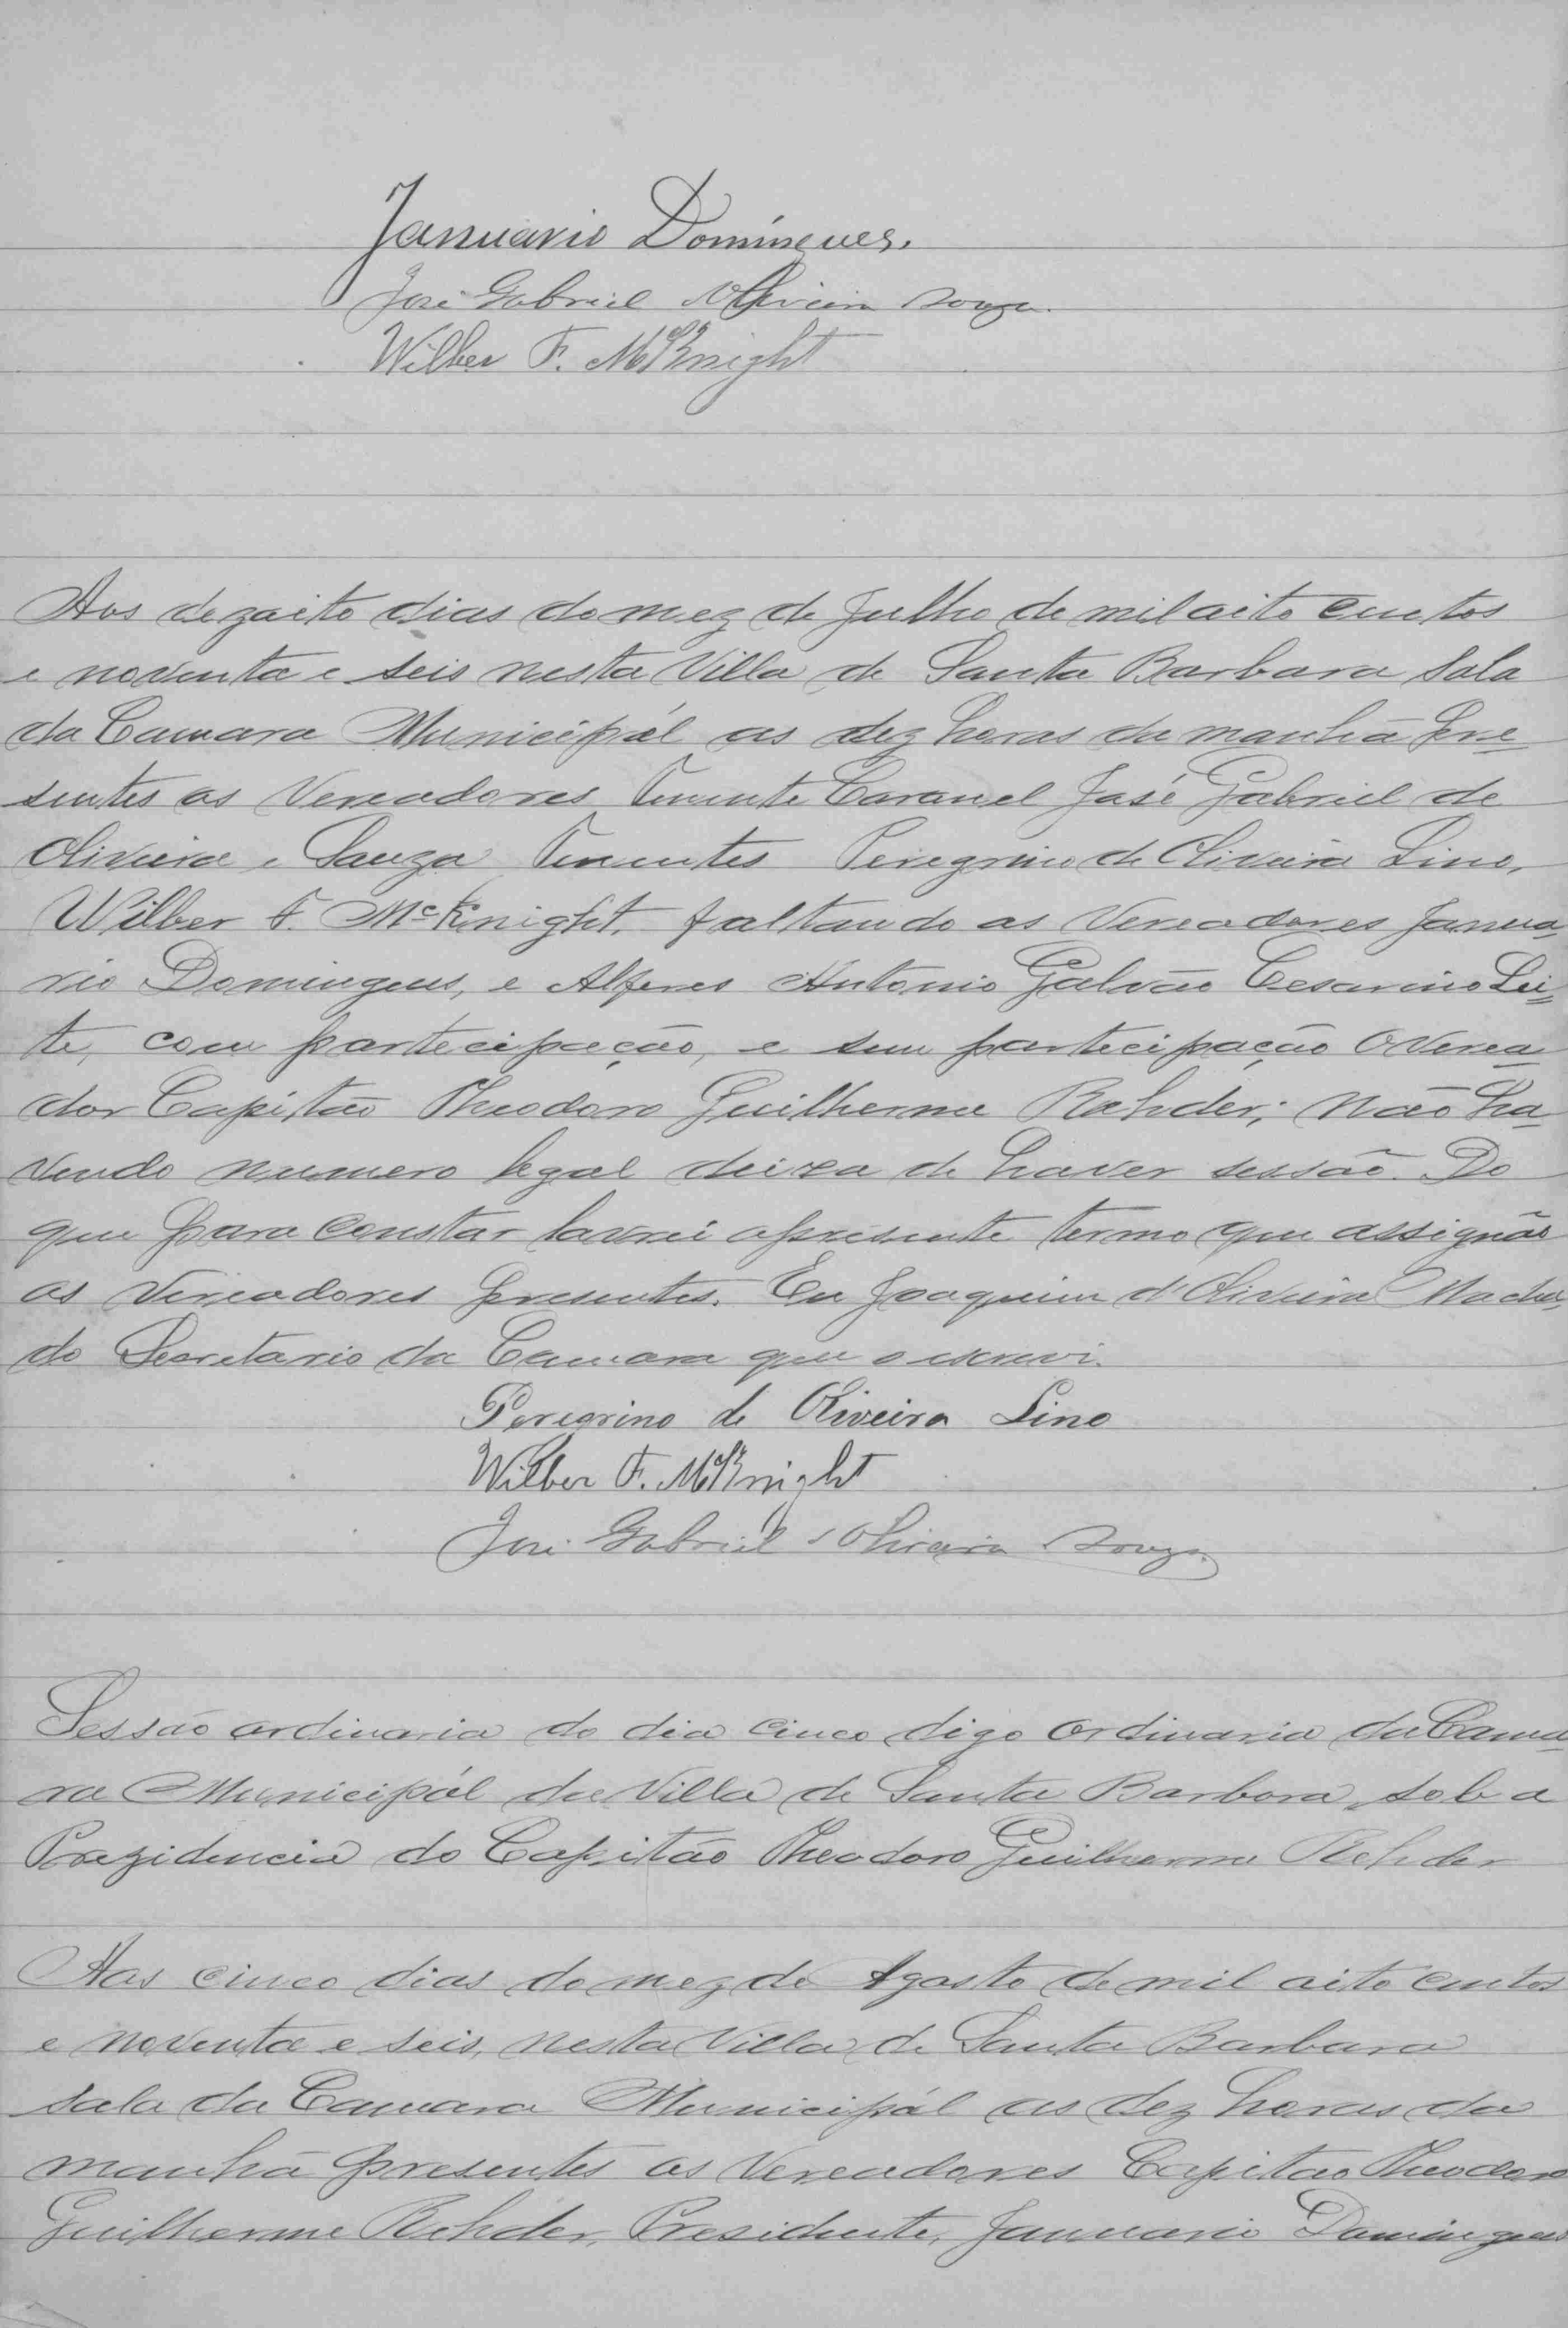 Januario Domingues.
José Gabriel d'Oliveira Souza.
Wilber F. McKnight
Aos dezoito dias do mez de Julho de mil oito centos
e noventa e seis nesta Villa de Santa Barbara Sala
da Camara Municipál as dez horas da manhã pre-
sentes os Vereadores Tenente Coronel José Gabriel de
Oliveira e Souza Tenentes Peregrino de Oliveira Lino,
Wilber F. McKnight, faltando os Vereadores Janua-
rio Domingues, e Alferes Antonio Galvão Cesarino Lei-
te, com partecipação, e sem partecipação O Verea-
dor Capitão Theodoro Guilherme Rehder; não ha-
vendo numero legal deixa de haver sessão. Do
que para constar lavrei o presente termo que assignão
os Vereadores presentes. Eu Joaquim d'Oliveira Macha-
do Secretario da Camara que o escrevi.
Peregrino de Oliveira Lino
Wilber F. McKnight
José Gabriel d'Oliveira Souza
Sessão ordinaria do dia cinco digo Ordinaria da Cama-
ra Municipál da Villa de Santa Barbara, sob a
Prezidencia do Capitão Theodoro Guilherme Rehder
Aos cinco dias do mez de Agosto de mil oito centos
e noventa e seis, nesta Villa de Santa Barbara
sala da Camara Municipál as dez horas da
manhã presentes os Vereadores Capitão Theodoro
Guilherme Rehder, Presidente, Januario Domingues